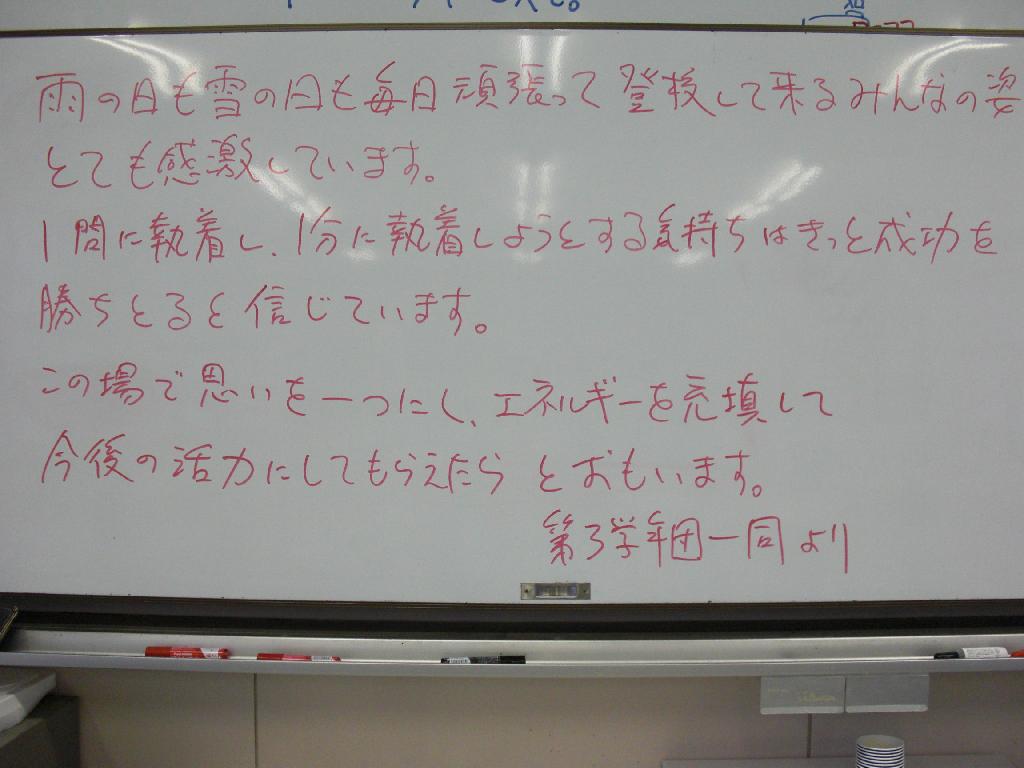 雨の日も雪の日も毎日頑張って登校して来るみんなの姿
とても感激しています。
1問に執着し、1分に執着しようとする気持ちはきっと成功を
勝ちとると信じています。
この場で思いを一つにし、エネルギーを充填して
今後の活力にしてもらえたら とおもいます。
第3学年団一同より